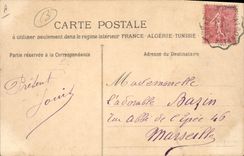 A
B
CARTE POSTALE
à utiliser seulement dans le régime intérieur FRANCE-ALGÉRIE-TUNISIE
Partie réservée à la Correspondance
Adresse du Destinataire
Mademoiselle
L'adorable Bazin
rue abbé de l'Épée 46
Marseille
Louis